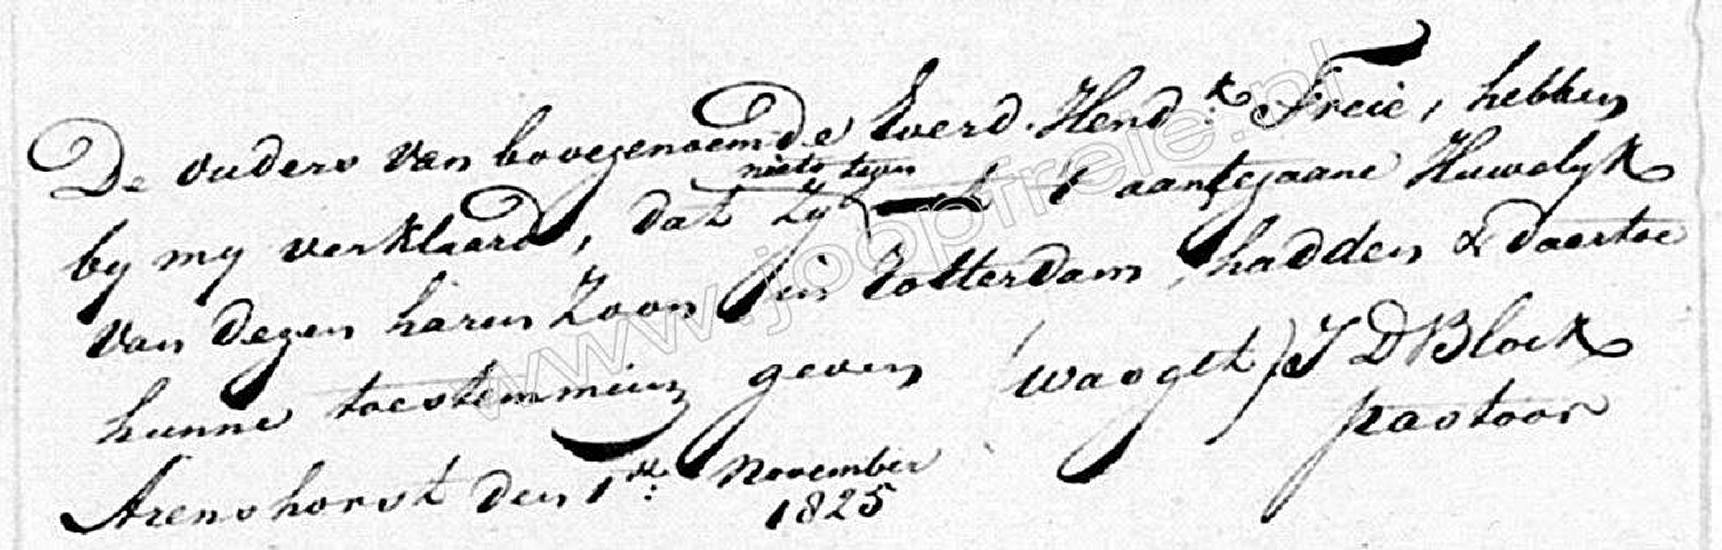 De ouders van bovegenoemde Everd. Hend.k Freie, hebben
niets tegen
by my verklaard, dat zy 't aantegaane Huwelyk
van dezen haren Zoon in Rotterdam, hadden & daartoe
hunne toestemming geven J D Block
pastoor
Arenshorst den 1te: November
1825
www.joopfreie.nl